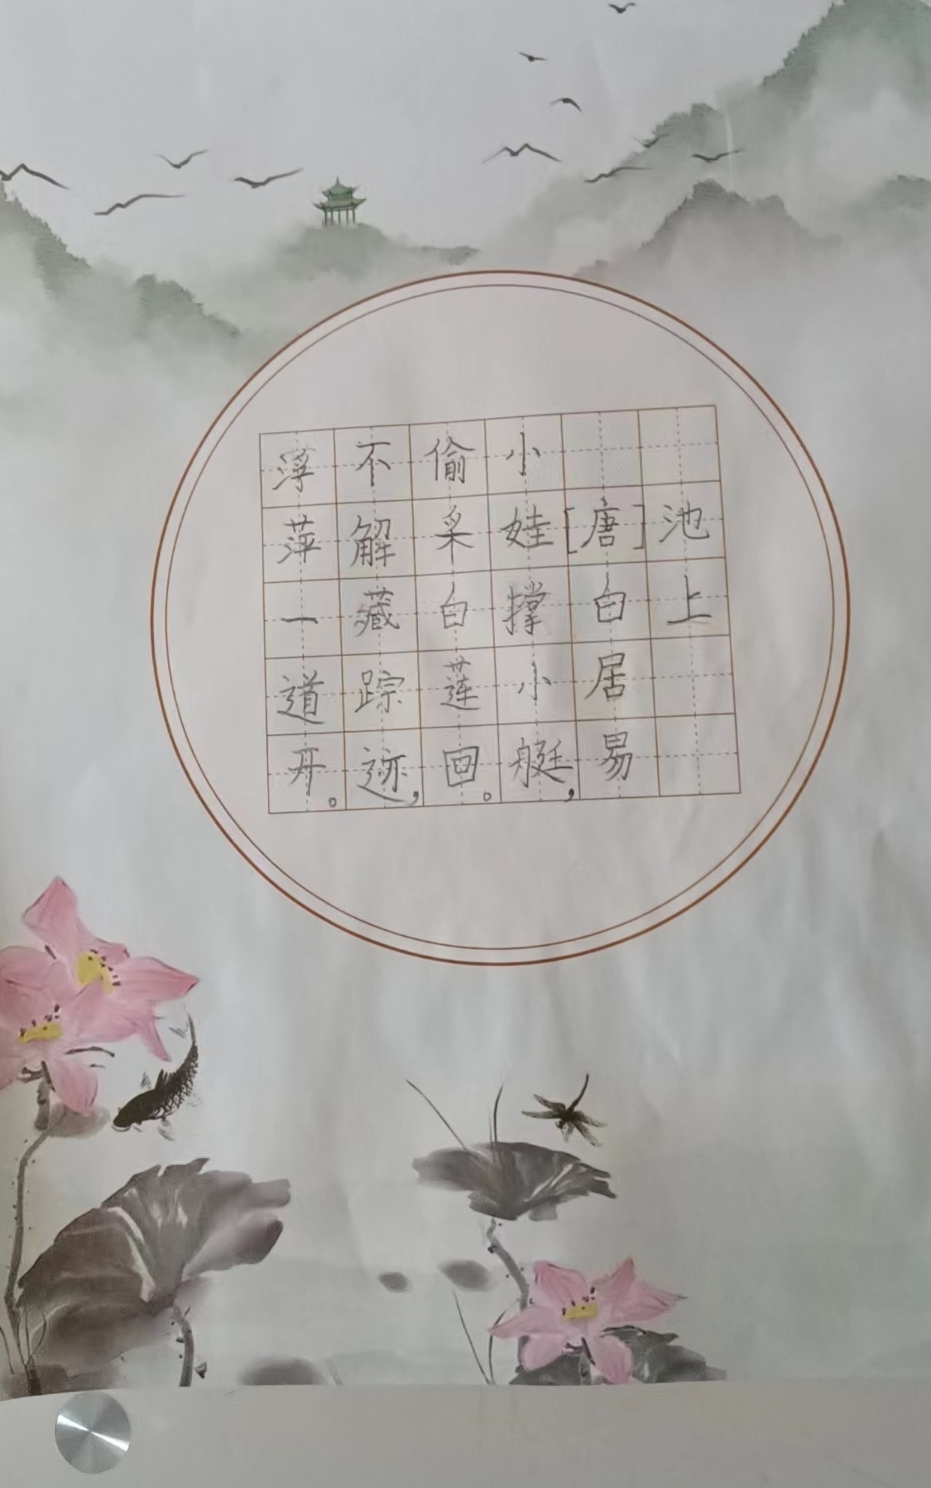 池上
[唐]白居易
小娃撑小艇,
偷采白莲回。
不解藏踪迹,
浮萍一道开。